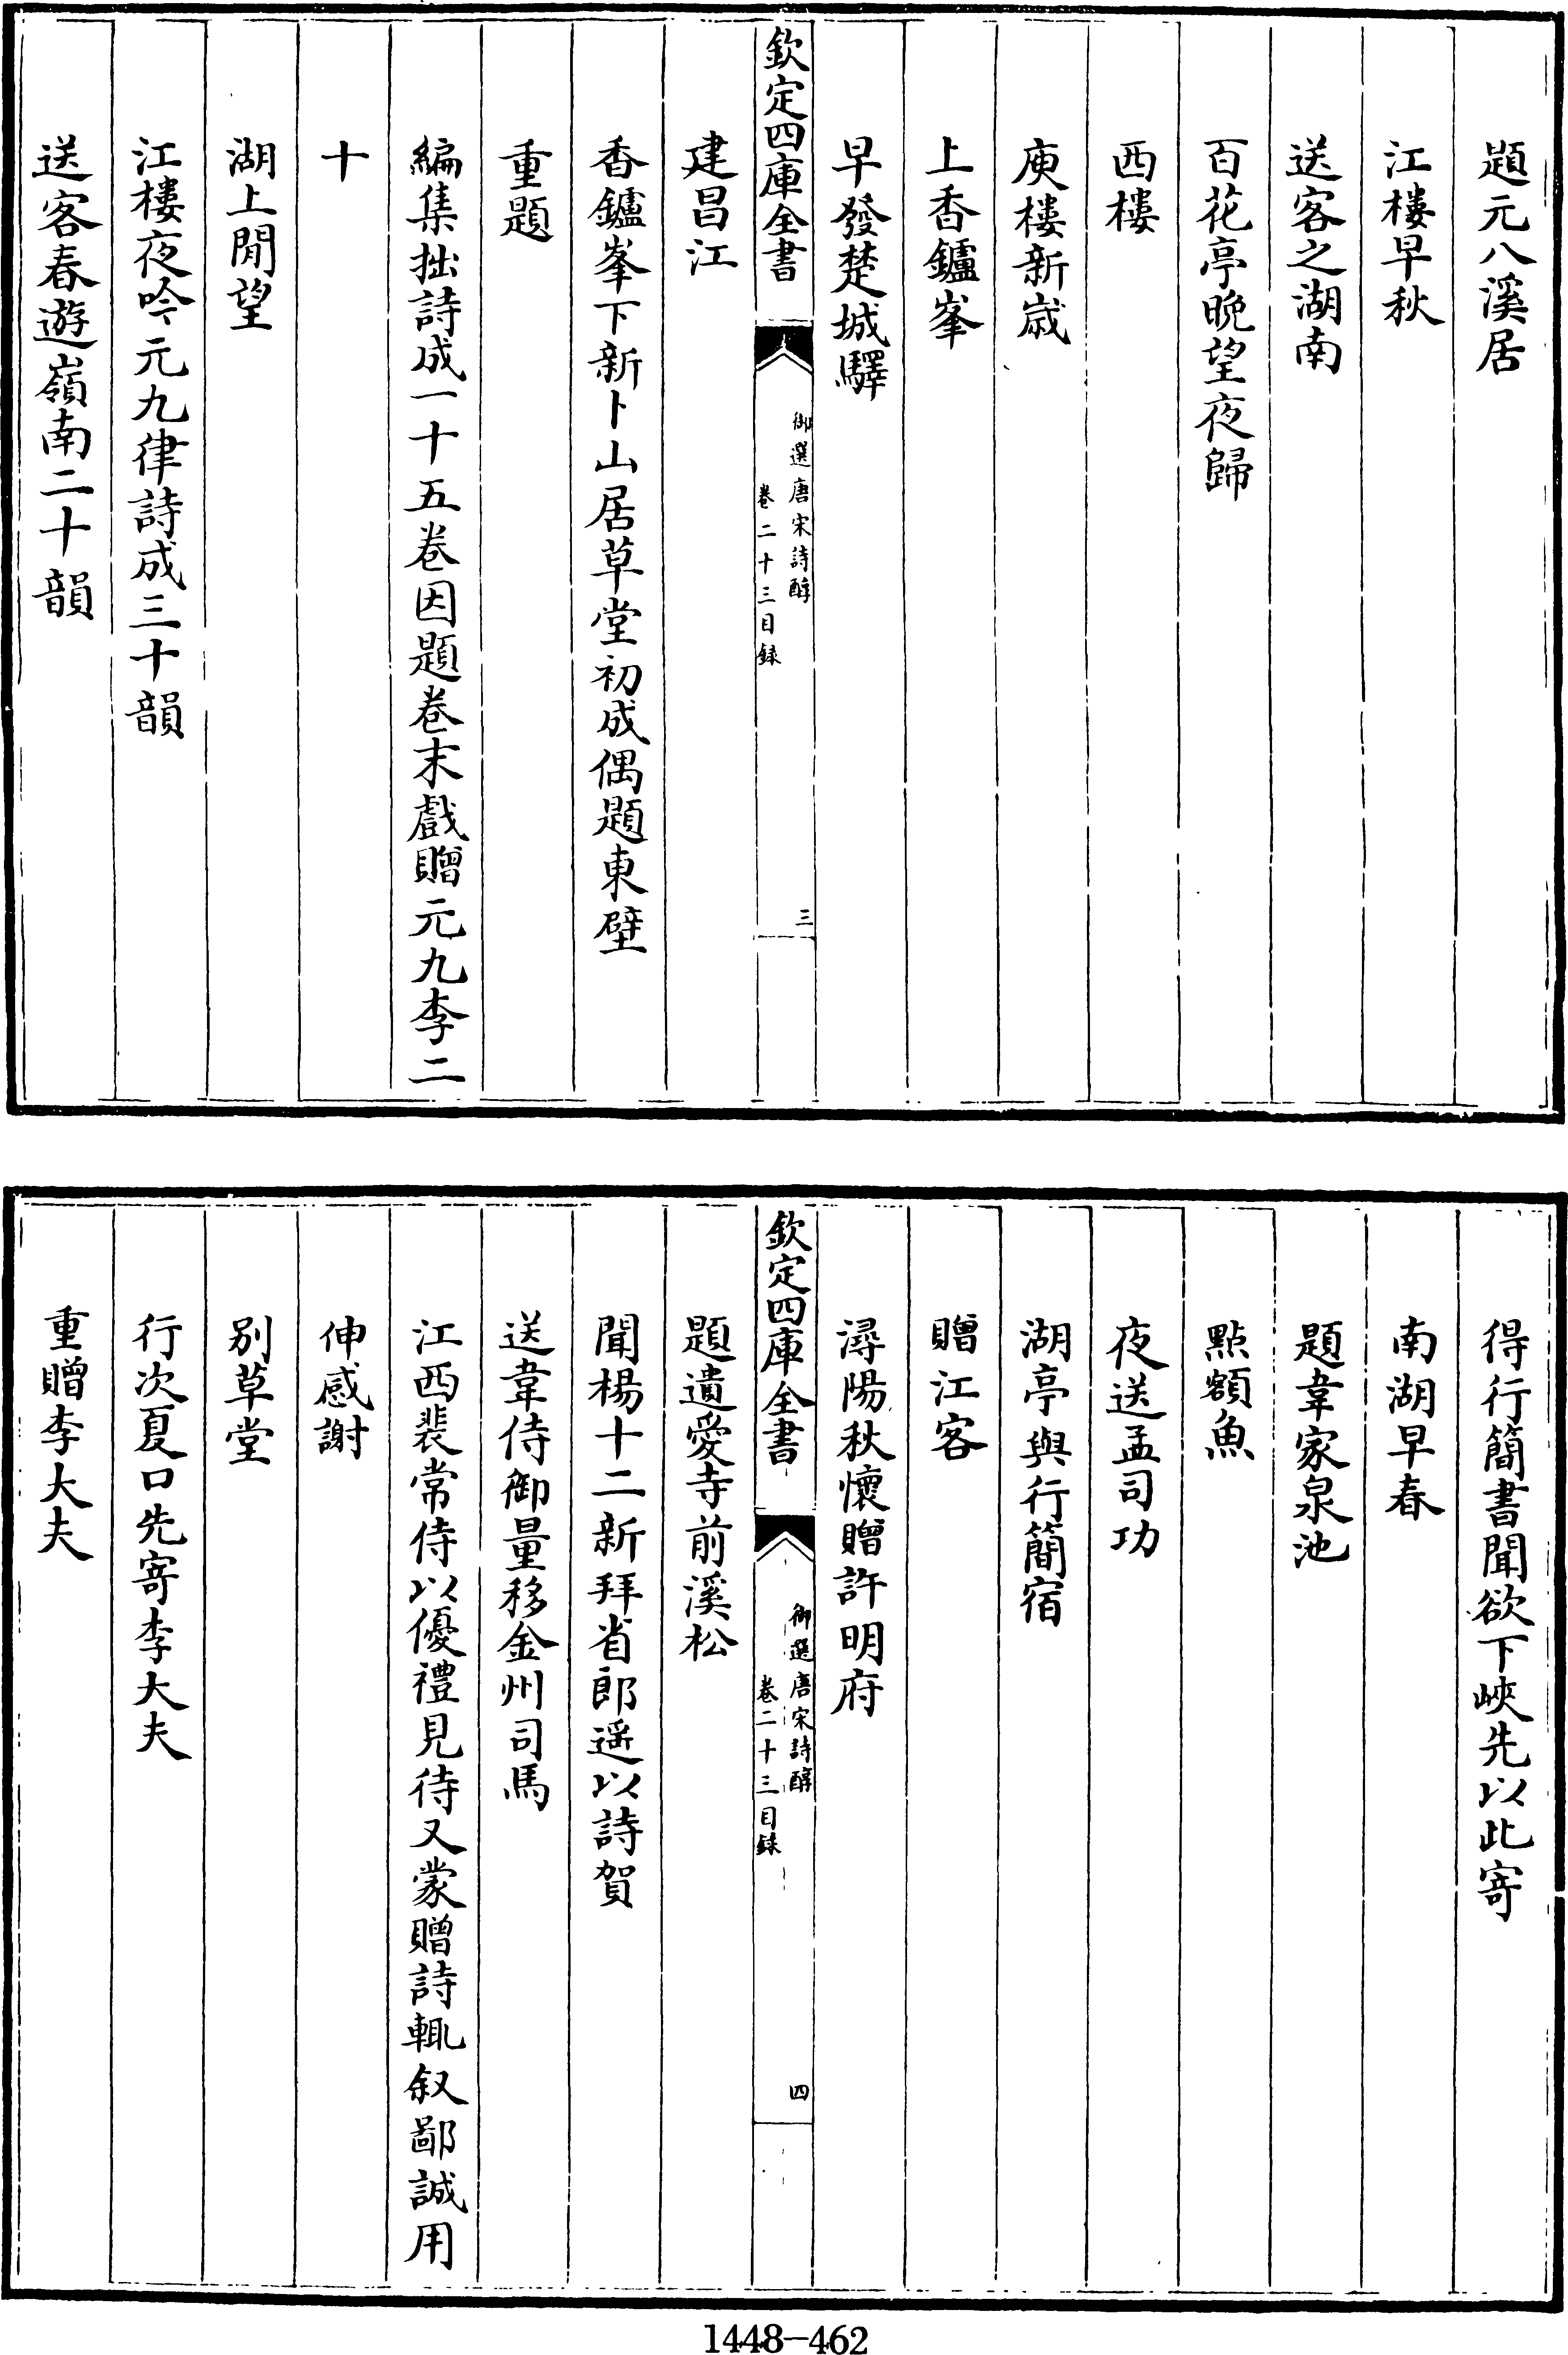 題元八溪居
江樓早秋
送客之湖南
百花亭晚望夜歸
西樓
庾樓新歲
上香鑪峯
早發楚城驛
欽定四庫全書
御選唐宋詩醇
卷二十三目録
三
建昌江
香鑪峯下新卜山居草堂初成偶題東壁
重題
編集拙詩成一十五卷因題卷末戲贈元九李二
十
湖上閒望
江樓夜吟元九律詩成三十韻
送客春遊嶺南二十韻
得行簡書聞欲下峽先以此寄
南湖早春
題韋家泉池
點額魚
夜送孟司功
湖亭與行簡宿
贈江客
潯陽秋懷贈許明府
欽定四庫全書
御選唐宋詩醇
卷二十三目録
四
題遺愛寺前溪松
聞楊十二新拜省郎遥以詩賀
送韋侍御量移金州司馬
江西裴常侍以優禮見待又蒙贈詩輒叙鄙誠用
伸感謝
別草堂
行次夏口先寄李大夫
重贈李大夫
1448-462